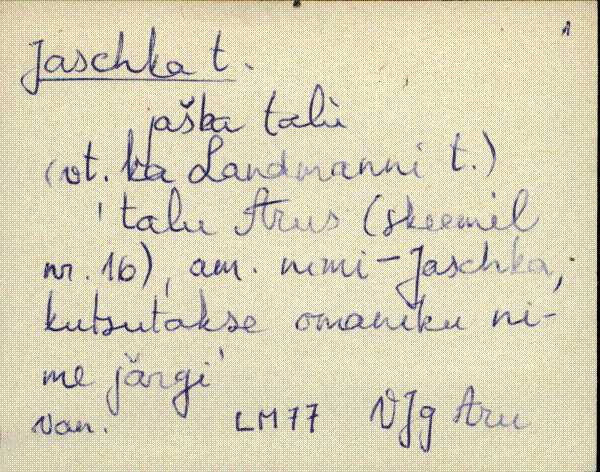 1
Jaschka t.
jaška talu
(vt. ka Landmanni t.)
'talu Arus (skeemil
nr. 16), am. nimi - Jaschka,
kutsutakse omaniku ni-
me järgi'
van. LM77 VJg Aru